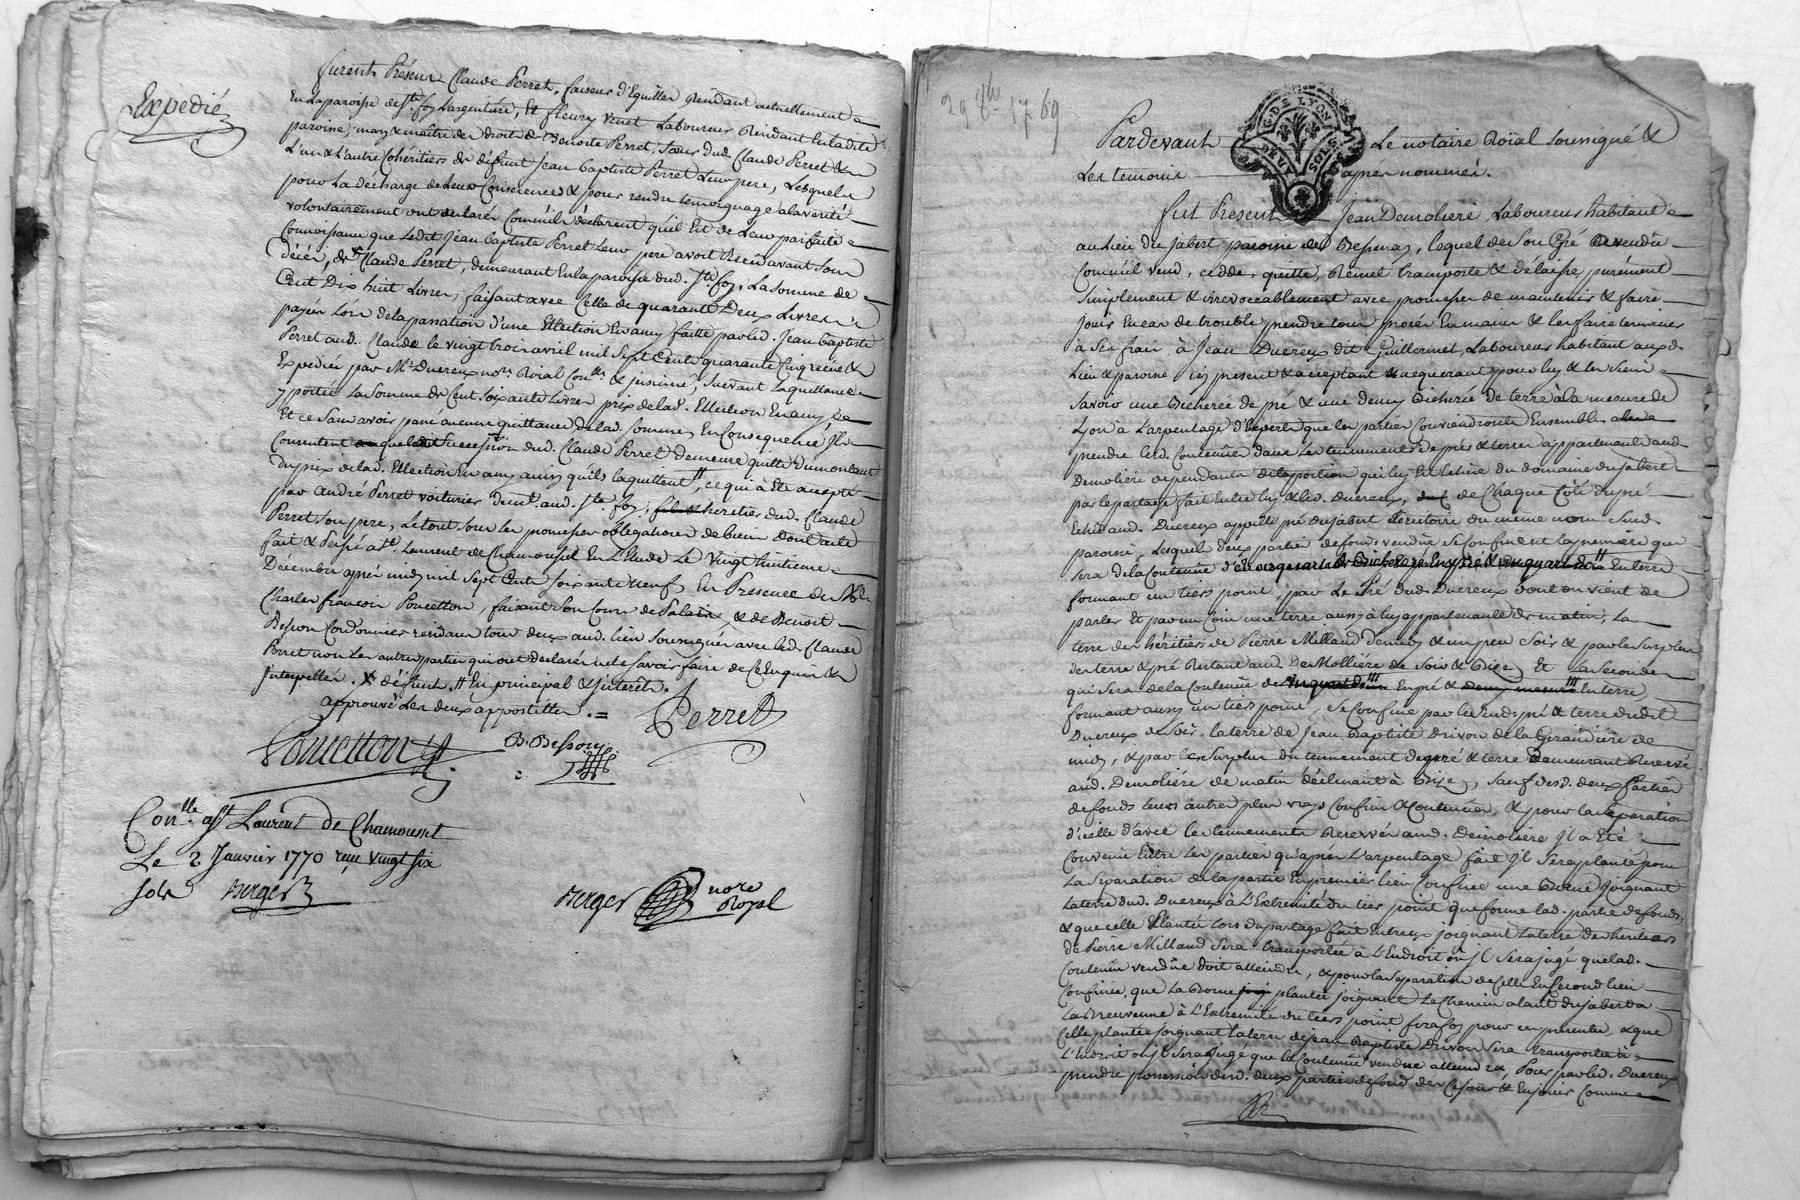 Expedié
furent Présens Claude Perret, faiseur d'Equilles Résidant actuellement
En la paroisse de Ste foy Largentiere, Et fleury Venet Laboureur Résidant En ladite
paroisse, mary & maître des droits de Benoite Perret, Sœur dud. Claude Perret &
L'un & L'autre Cohéritiers de défunt Jean baptiste Perret Leur pere, Lesquels
pour La décharge de Leurs Consciences & pour rendre temoignage a la vérité
volontairement ont declaré Comm'ils declarent qu'il Est de Leur parfaite
Connoissance que Ledit Jean baptiste Perret Leur pere avoit Reçu avant Son
décès, de Claude Perret, demeurant En la paroisse dud. Ste foy, La Somme de
Cent Dix huit Livres, faisant avec Celle de quarante Deux Livres
payée Lors de la passation d'une Ellection En amy faitte par led. Jean baptiste
Perret aud. Claude le vingt trois avril mil Sept Cents quarante Cinq reçue &
Expediée par Me Ducreux nore Roial Conlle & insinué, Suivant la quittance
y portée La Somme de Cent Soixante Livres prix de lad. Ellection En amy
Et ce Sans avoir passé aucune quittance de lad. Somme, En Conséquence, Ils
Consentent que la Succession dud. Claude Perret demeure quitte du montant
du prix de lad. Ellection En amy ainsy qu'ils la quittent, ce qui a Eté accepté
par andré Perret voiturier demt. aud. Ste foy, fils & heritier dud. Claude
Perret Son pere, Le tout Sous les promesses obligations de biens Dont acte
fait & Passé a St. Laurent de Chamousset En L'Etude Le Vingt huitieme
Décembre après midy mil Sept Cents Soixante neuf, En Presence de Me
Charles françois Poncetton, faisant Son Cours de Palais, & de Benoit
Besson Cordonnier residants tous deux aud. lieu Soussignés avec led. Claude
Perret non Les autres parties qui ont declaré ne le Savoir faire de Ce Enquis &
Interpellés. X défunt. # En principal & Interêts.
approuvé Les deux appostilles . =
Perret
Poncetton
B. Besson
Conlle. a St Laurent de Chamousset
Le 2 Janvier 1770 reçu vingt six
Sols Berger
Berger nore Royal
29 8bre 1769
G. DE LYON
DEUX SOLS
Pardevant Le notaire Roial Soussigné &
Les temoins après nommés.
fut Présent Jean Demoliere, Laboureur habitant
au Lieu du Jabert paroisse de Bessenay, lequel de Son Gré a vendu
Comm'il vend, cedde, quitte, Remet transporte & délaisse, purement
Simplement & irrevocablement avec promesses de maintenir & faire
Jouir En cas de trouble prendre tous procès En mains & les faire terminer
à Ses frais à Jean Ducreux dit Guillermet, Laboureur habitant aux d.
Lieu & paroisse icy présent & acceptant & acquerant pour luy & les Siens
Savoir une Bicherée de pré & une demy bicherée de terre à la mesure de
Lyon à L'arpentage d'Experts que les parties Conviendront Ensemble
prendre led. Contenue dans Les tennements de prés & terres appartenants aud.
Demoliere dépendants de la portion qui luy Est échue du domaine du Jabert
par le partage fait Entre luy & led. Ducreux, de Chaque Côté du pré
Echu aud. Ducreux appellé pré du Jabert territoire du même nom Susd.
paroisse, Lesquels deux parties de fonds vendus Se Confinent la premiere qui
sera de la Contenue En terre
formant un tiers point, par Le Pré dud. Ducreux dont on vient de
parler Et par un Coin une terre aussy à luy appartenante de matin, La
terre des héritiers de Pierre Milland de midy & un peu Soir & par le Surplus
des terre & pré Restant aud. DeMolliere de Soir & bize, Et la Seconde
qui Sera de la Contenue de En pré & En terre
formant aussy un tiers point, Se Confine par lesd. pré & terre dudit
Ducreux de Soir. la terre de Jean Baptiste Drivon de la Girandiere de
midy, & par le Surplus du tennement de pré & terre demeurant Reservé
aud. Demoliére de matin déclinant à bize, Sauf desd. deux Parties
de fonds leurs autres plus vrays Confins & Contenues, & pour la Séparation
d'icelle d'avec les tennements Reservés aud. Demoliére Il a Eté
Convenu Entre Les parties qu'après L'arpentage fait Il Sera planté pour
La Séparation de la partie En premier lieu Confinée une Borne Joignant
La terre dud. Ducreux à L'Extremité du tiers point que forme lad. partie de fonds,
& que celle Plantée lors du partage fait Entr'eux joignant la terre des heritiers
de Pierre Milland Sera transportée à L'Endroit où Il Sera jugé que lad.
Contenue vendue doit atteindre, & pour la Séparation de Celle En Second lieu
Confinée, que La Borne plantée joignant Le Chemin alant du Jabert à
La Brevenne à L'Extremité du tiers point
Celle plantée joignant la terre de Jean Baptiste Drivon Sera transportée à
L'Endroit où Il Sera jugé que la Contenue vendue atteindra, Pour par led. Ducreux
prendre possession desd. deux parties de fond dès Ce jour & En jouir Comme